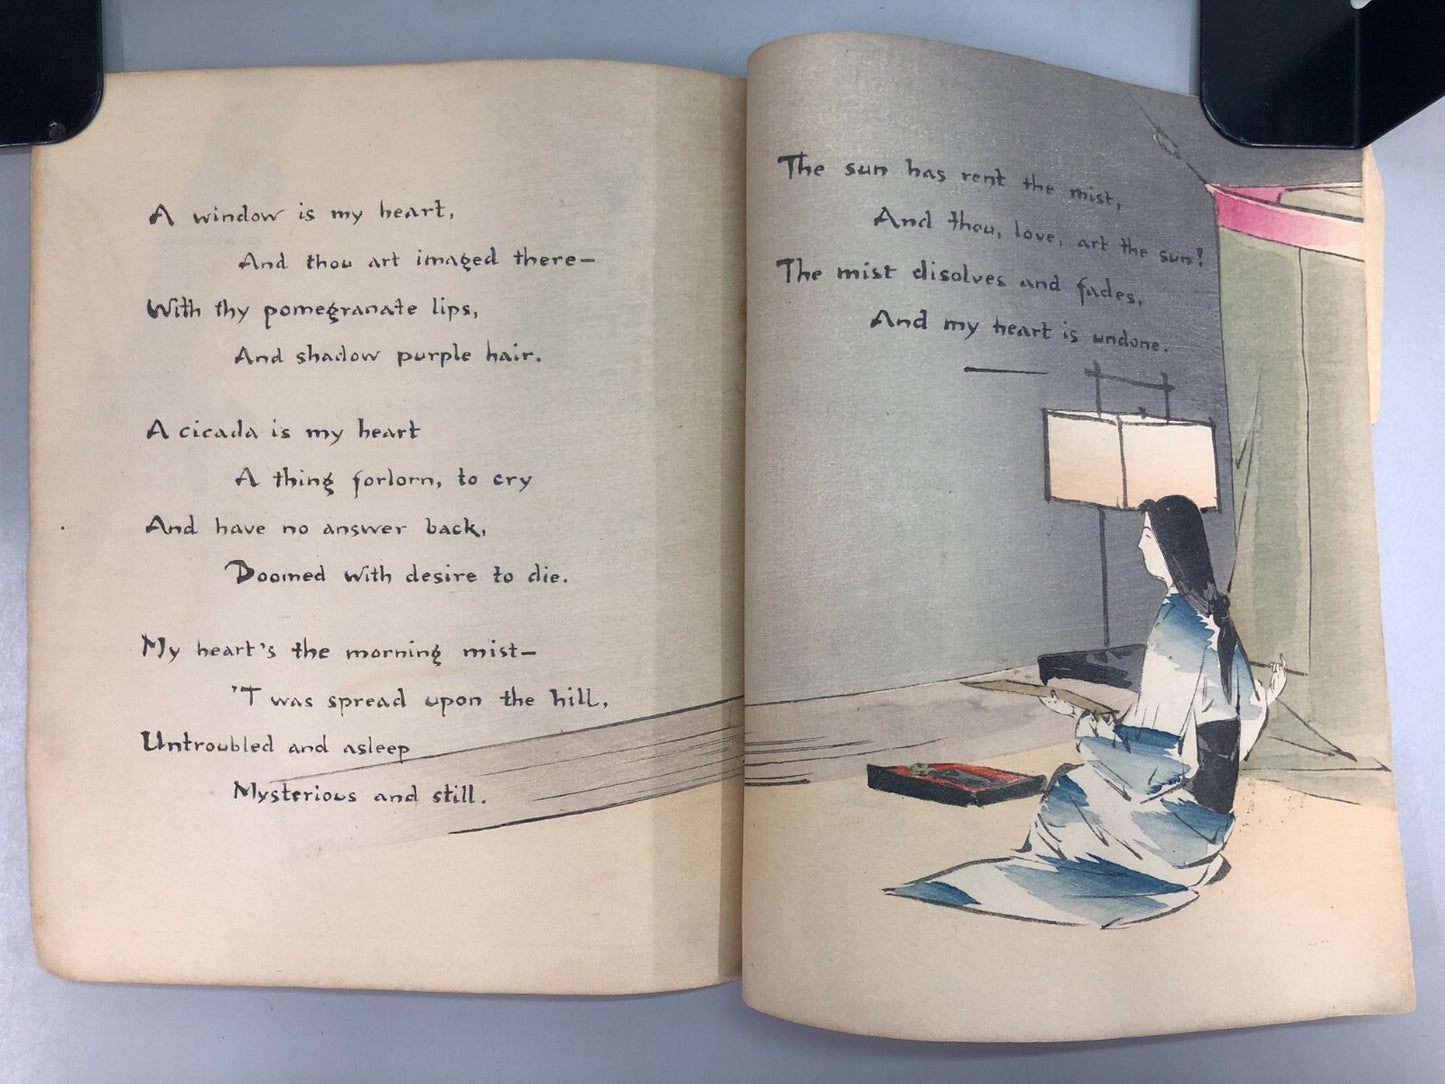 A window is my heart,
And thou art imaged there—
With thy pomegranate lips,
And shadow purple hair.
A cicada is my heart
A thing forlorn, to cry
And have no answer back,
Doomed with desire to die.
My heart's the morning mist—
'T was spread upon the hill,
Untroubled and asleep
Mysterious and still.
The sun has rent the mist,
And thou, love, art the sun!
The mist disolves and fades,
And my heart is undone.